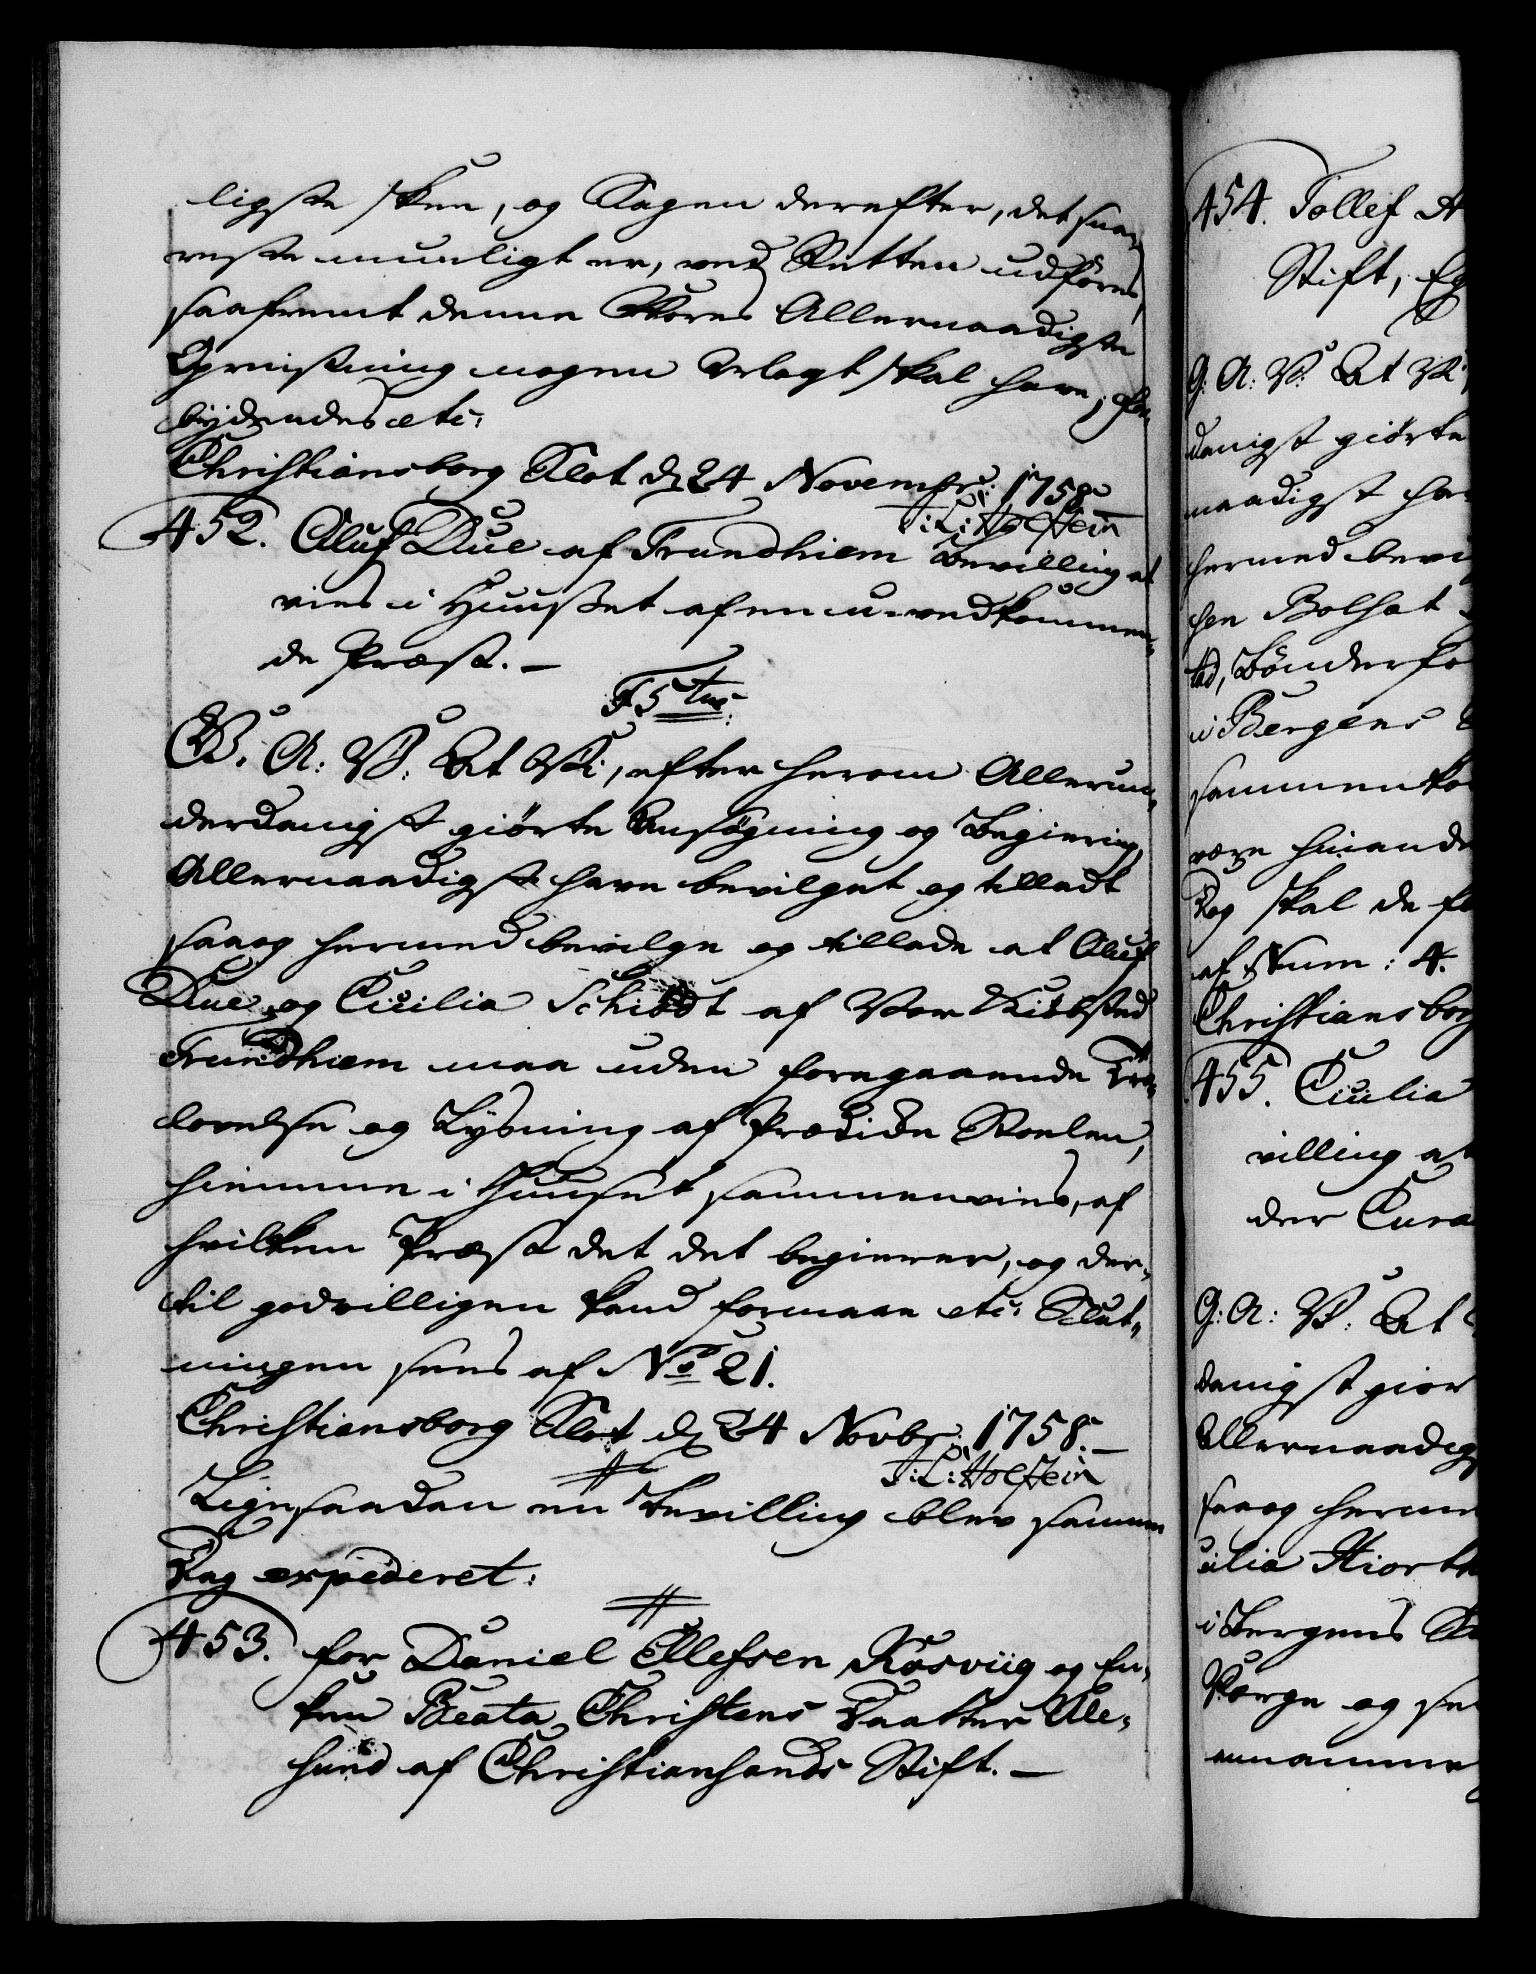 ligste skee, og Sagen derefter, det snar-
reste mueligt er, ved Retten udføres,
saafremt denne Vores Allernaadigste
Opreisning nogen Erlagt skal have, For-
bydendes etc:
Christiansborg Slot d. 24 Novembr: 1758.
J: L: Holstein
452. Oluf Due af Trundhiem Bevilling at
vies i Huuset af en u-vedkommen-
de Præst. —
F 5tus
G. A: V: At Vi, efter herom Allerun-
derdanigst giørte Ansøgning og Begiering,
Allernaadigst have bevilget og tilladt
saa og hermed bevilge og tillade at Oluf
Due og Cicilia Schiødt af Vor Kiøbsted
Trundhiem maa uden foregaaende Tro-
lovelse og Lysning af Prædike Stoelen,
hiemme i Huuset sammenvies, af
hvilken Præst det det begierer, og der-
til godvilligen kand formaae etc: Slut-
ningen sees af No 21.
Christiansborg Slot d. 24 Novbr: 1758. —
J: L: Holstein
Lige saadan en Bevilling blev samme
Dag expederet:
453. for Daniel Ellefsen Røsviig og En-
ken Beata Christens Daatter Ale-
sund af Christiansands Stift. —
454. Tollef
Stift,
G: A: V: At Vi
danigst giørte
naadigst ha
hermed bevi
hen Bolhat
tad, Bønderfo
i Bergens
sammenko
være hinande
Dog skal de
af Num: 4.
Christiansborg
455. Cicilia
villing at
der Cura
G: A: V: At
danigst giør
Allernaadigs
saa og herm
cilia Hiorth
i Bergens
Værge og
ennamme